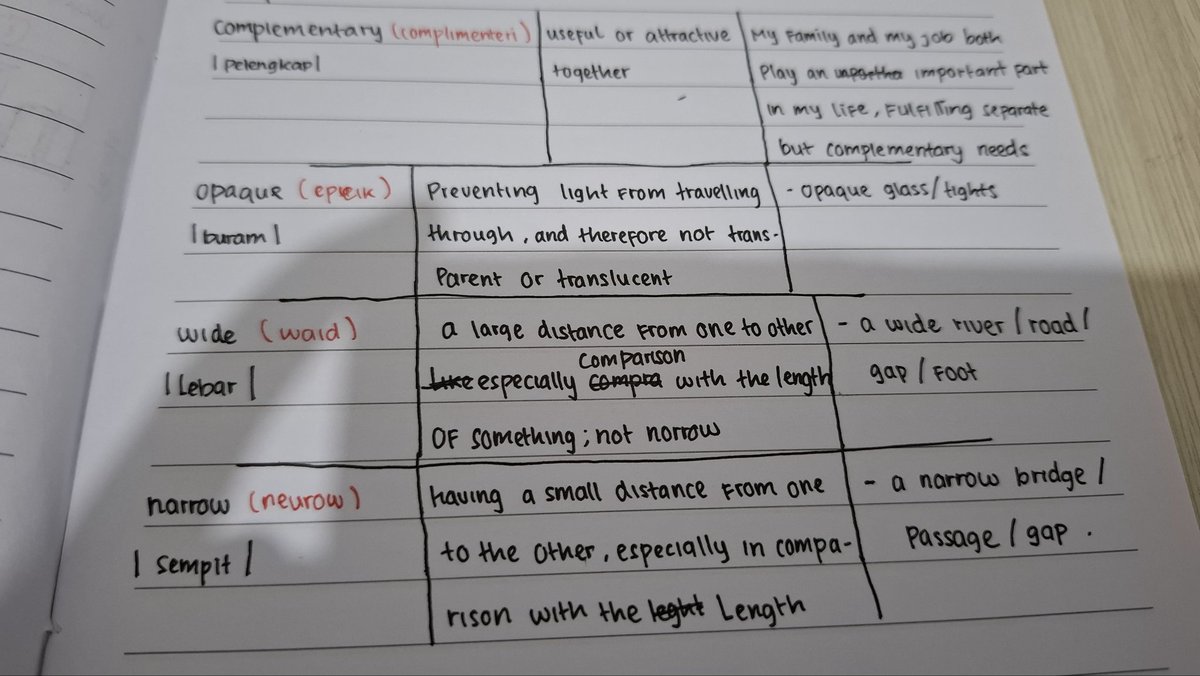 complementary (complimenteri)
|pelengkap|
useful or attractive
together
My family and my job both
Play an important part
in my life, Fulfilling separate
but complementary needs
opaque
|buram|
Preventing light from travelling
through, and therefore not trans-
Parent or translucent
- opaque glass/tights
wide (waid)
|Lebar|
a large distance from one to other
comparison
especially with the length
OF something; not norrow
- a wide river / road /
gap / Foot
narrow (neurow)
| sempit |
having a small distance from one
to the other, especially in compa-
rison with the Length
- a narrow bridge /
Passage / gap .